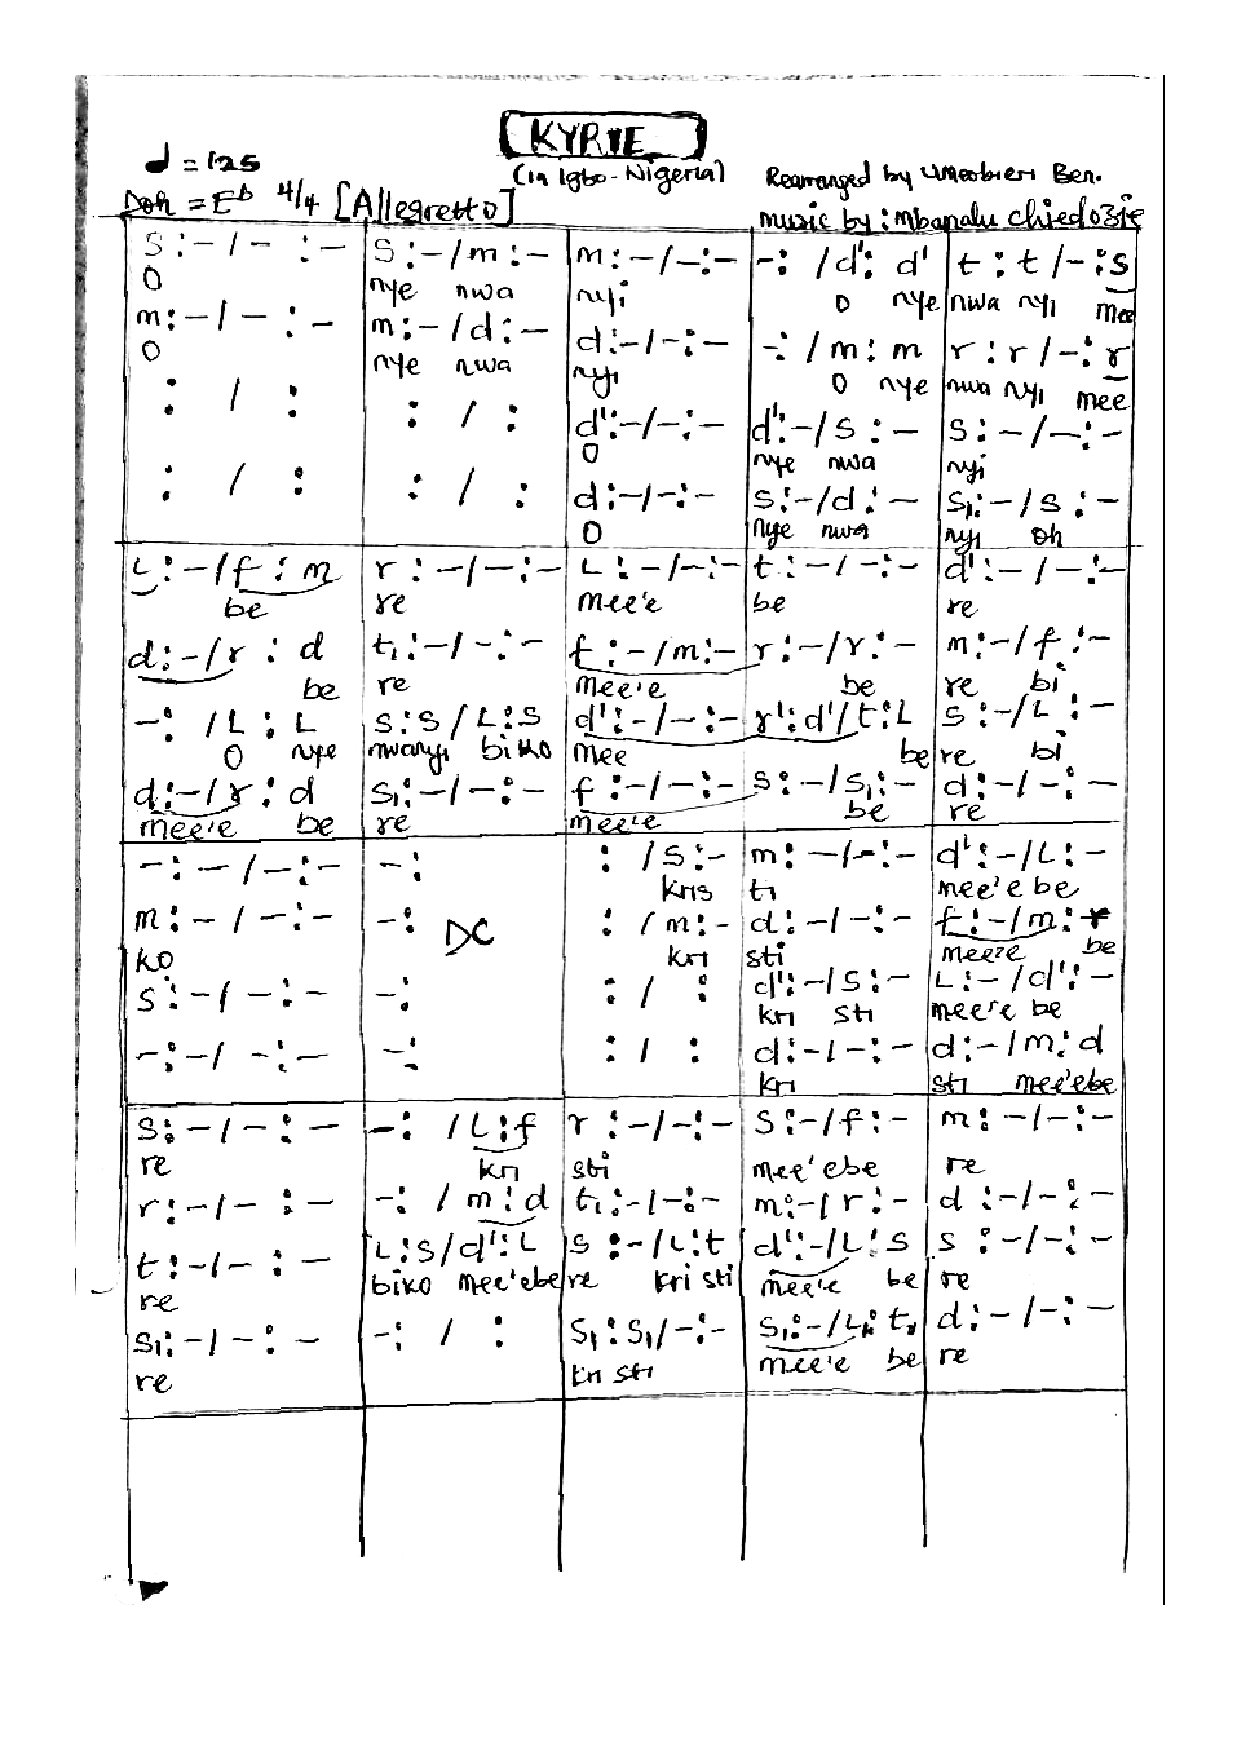 KYRIE
♩ = 125
(in Igbo-Nigeria)
Rearranged by Umeobieri Ben.
Doh = Eb 4/4 [Allegretto]
music by: Mbanalu Chiedozie
s :- / - : - | s :- / m : - | m :- / - : - | - : / d' : d' | t : t / - : s
O nye nwa nyi O nye nwa nyi mee
m :- / - : - | m :- / d : - | d :- / - : - | - : / m : m | r : r / - : r
O nye nwa nyi O nye nwa nyi mee
: / : | : / : | d' :- / - : - | d' :- / s : - | s :- / - : -
O nye nwa nyi
: / : | : / : | d :- / - : - | s :- / d : - | s₁ :- / s : -
O nye nwa nyi oh
L :- / f : m | r :- / - : - | L :- / - : - | t :- / - : - | d' :- / - : -
be re mee'e be re
d :- / r : d | t₁ :- / - : - | f :- / m : - | r :- / r : - | m :- / f : -
be re mee'e be re bi
- : / L : L | s : s / L : s | d' :- / - : - | r' : d' / t : L | s :- / L : -
O nye nwanyi biko mee be re bi
d :- / r : d | s₁ :- / - : - | f :- / - : - | s :- / s₁ : - | d :- / - : -
mee'e be re mee'e be re
- : - / - : - | - : | : / s : - | m :- / - : - | d' :- / L : -
kris ti mee'e be
m :- / - : - | - : DC | : / m : - | d :- / - : - | f :- / m : r
ko kri sti meere be
s :- / - : - | - : | : / : | d' :- / s : - | L :- / d' : -
kri sti mee'e be
- : - / - : - | - : | : / : | d :- / - : - | d :- / m : d
kri sti mee'ebe
s :- / - : - | - : / L : f | r :- / - : - | s :- / f : - | m :- / - : -
re kri sti mee'ebe re
r :- / - : - | - : / m : d | t₁ :- / - : - | m :- / r : - | d :- / - : -
t :- / - : - | L : s / d' : L | s :- / L : t | d' :- / L : s | s :- / - : -
re biko mee'ebe re kri sti mee'e be re
s₁ :- / - : - | - : / : | s₁ : s₁ / - : - | s₁ :- / L₁ : t₁ | d :- / - : -
re kri sti mee'e be re